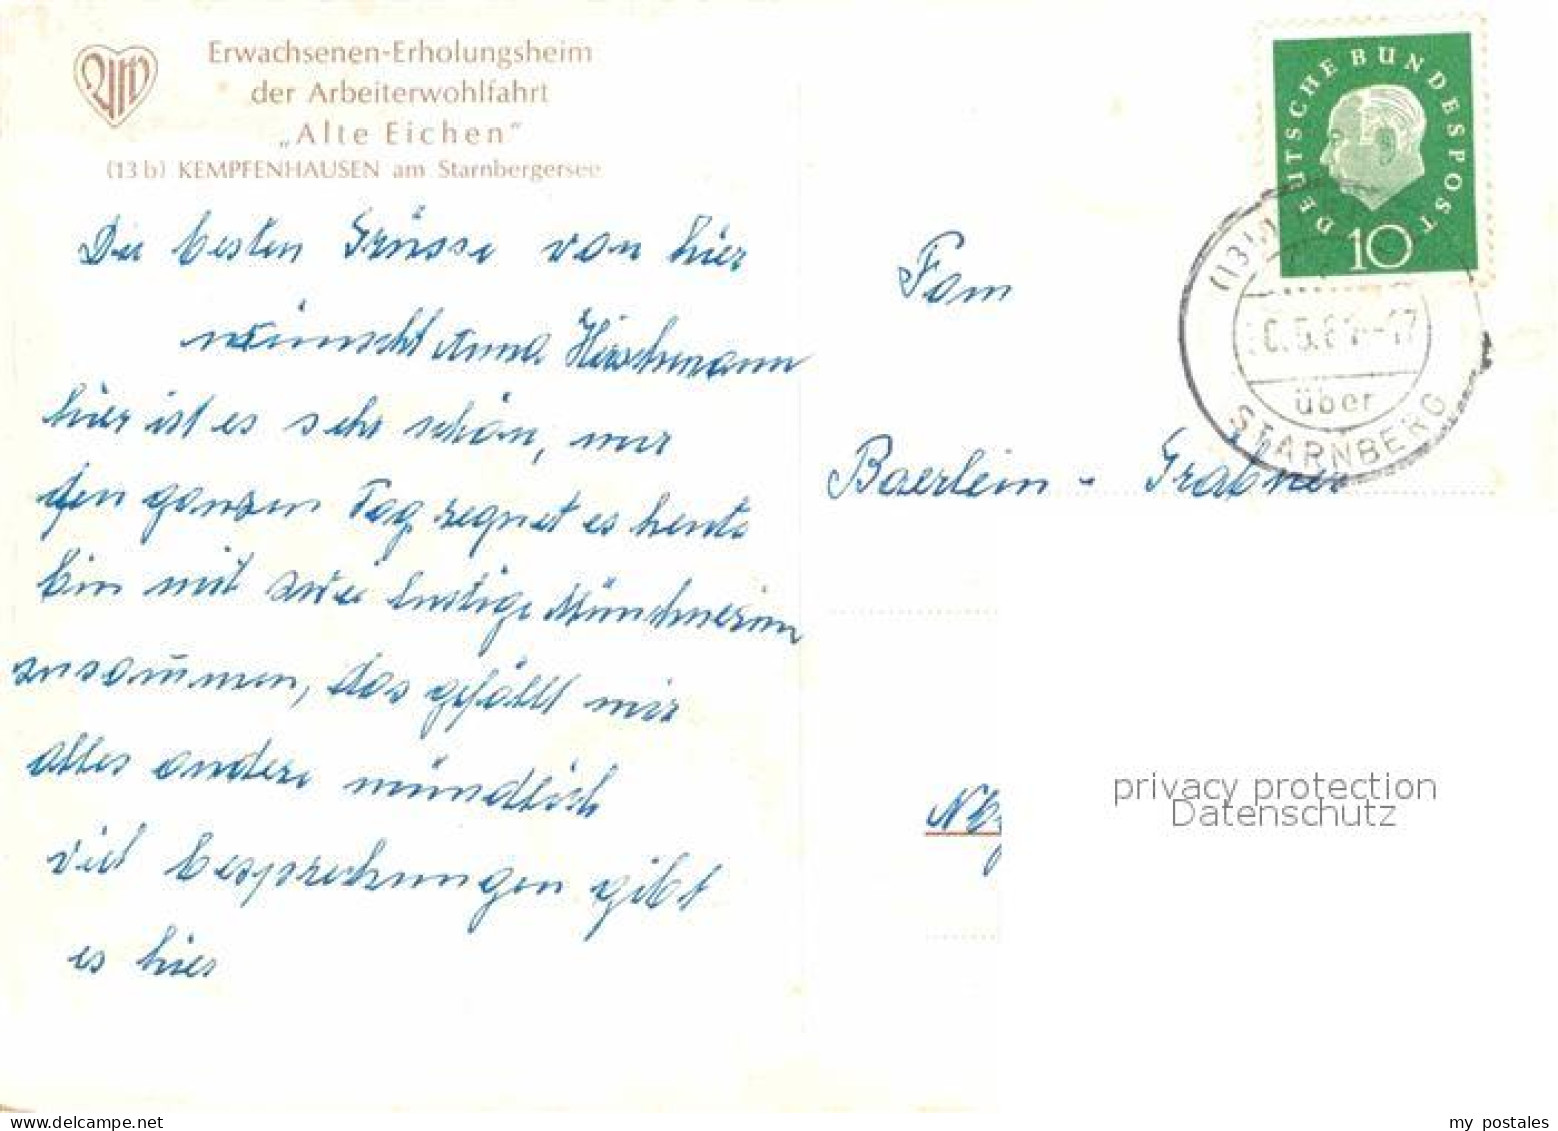 Erwachsenen-Erholungsheim
der Arbeiterwohlfahrt
„Alte Eichen"
(13 b) KEMPFENHAUSEN am Starnbergersee
Die besten Grüsse von hier
wünscht Anna Hirschmann
hier ist es sehr schön, nur
den ganzen Tag regnet es heute
bin mit zwei lustige Münchnerinn
zusammen, das gefällt mir
alles andere mündlich
viel Besprechungen gibt
es hier
DEUTSCHE BUNDESPOST
10
über
STARNBERG
Fam
Baerlein - Grabner
privacy protection
Datenschutz
my postales